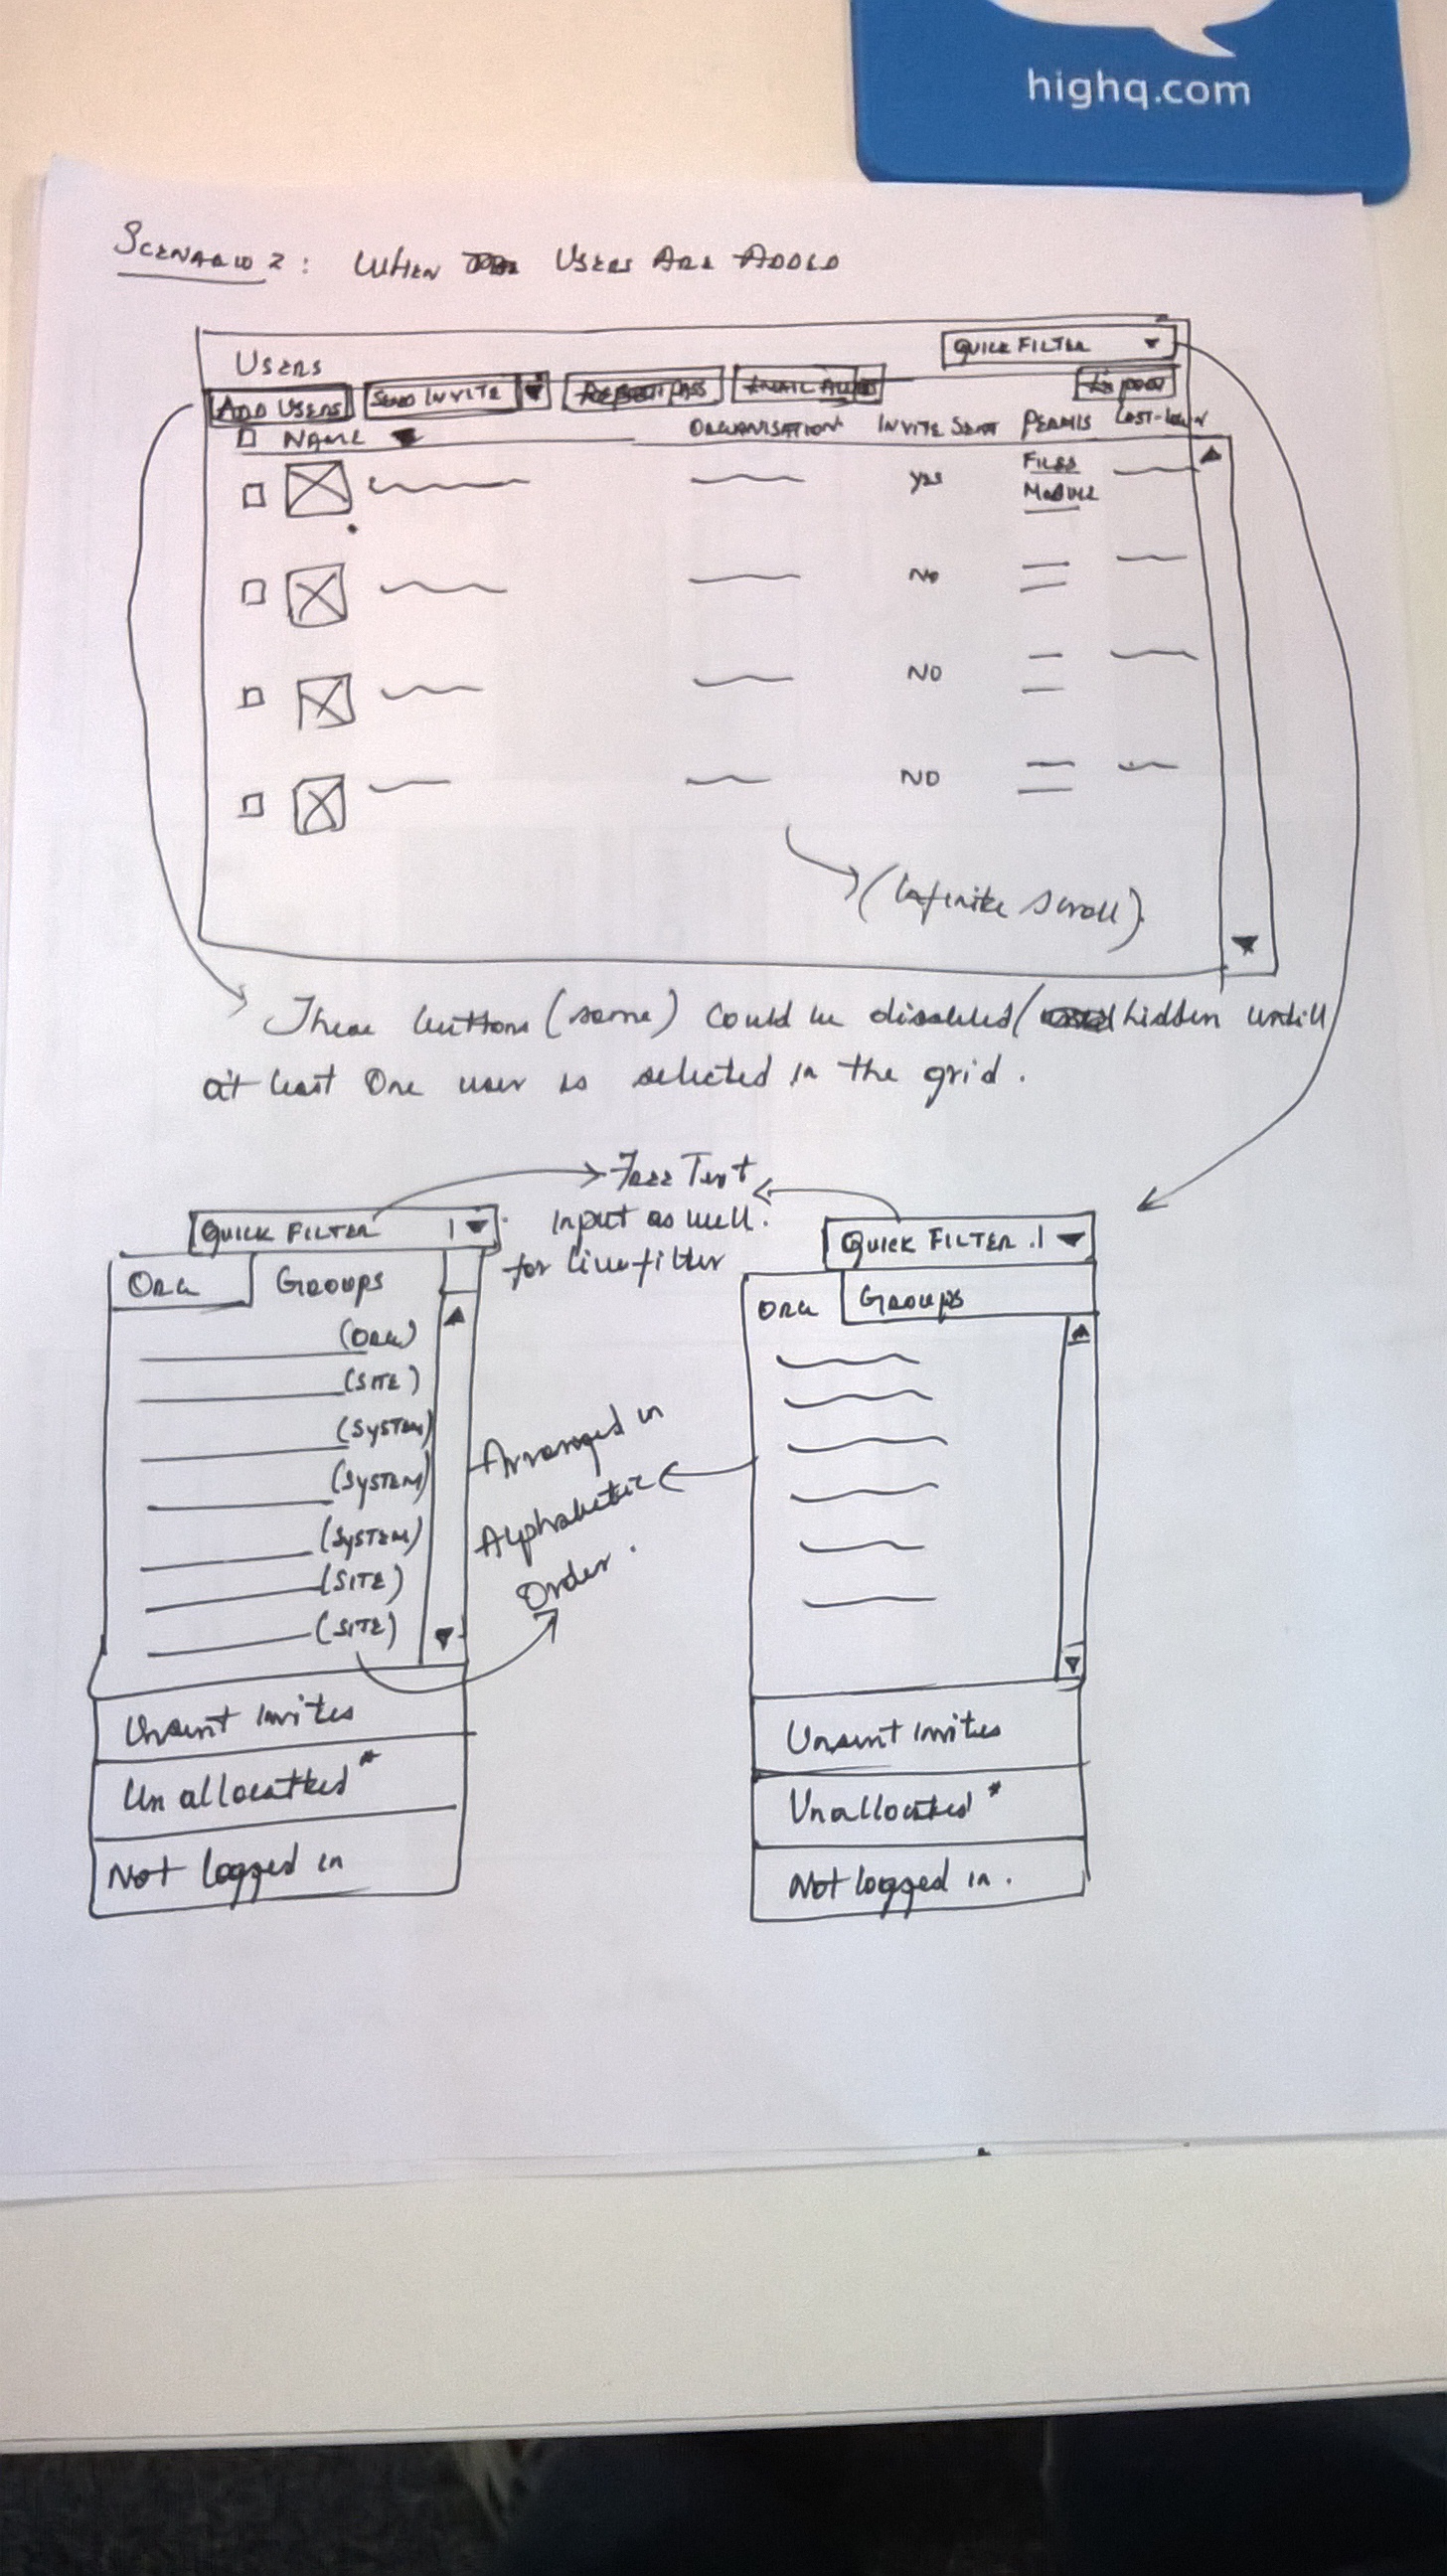 highq.com
SCENARIO 2: WHEN USERS ARE ADDED
QUICK FILTER
USERS
ADD USERS SEND INVITE RESET PASS EMAIL ALERTS EXPORT
NAME ORGANISATION INVITE SENT PERMIS LAST-LOGIN
YES FILES
MODULE
NO
NO
NO
(Infinite scroll).
These buttons (some) could be disabled/ hidden untill
at least One user is selected in the grid.
Free Text
input as well.
for live filter
QUICK FILTER
ORG GROUPS
(ORG)
(SITE)
(SYSTEM)
(SYSTEM)
(SYSTEM)
(SITE)
(SITE)
Unsent invites
Un allocatted*
Not logged in
Arranged in
Alphabetic
Order.
QUICK FILTER
ORG GROUPS
Unsent invites
Unallocated*
Not logged in.